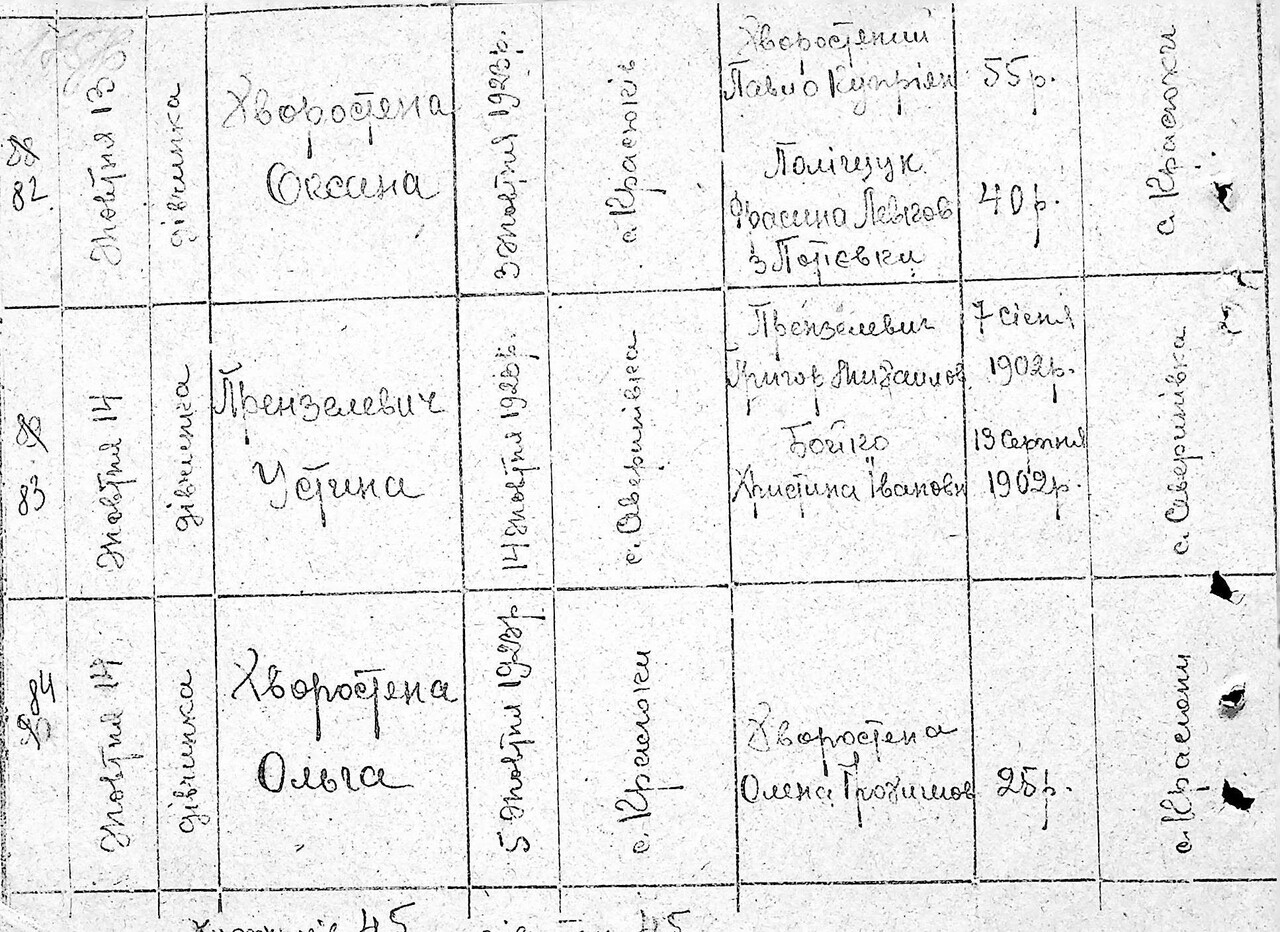 82
Жовтня 13
дівчинка
Хворостена
Оксана
3 Жовтня 1923р.
с. Красюків
Хворостений
Павло Купріян
55р.
Поліщук
Фрасина Левков
з Потієвки
40р.
с. Красюки
83
Жовтня 14
дівчинка
Прензелевич
Устина
14 Жовтня 1923р.
с. Сверинівка
Прензелевич
Григор Михайлов
7 Січня
1902р.
Бойко
Христина Івановн
19 Серпня
1902р.
с. Сверинівка
84
Жовтня 14
дівчинка
Хворостена
Ольга
5 Жовтня 1923р
с. Красюки
Хворостена
Олена Трохимов
25р.
с. Красюки
45
45